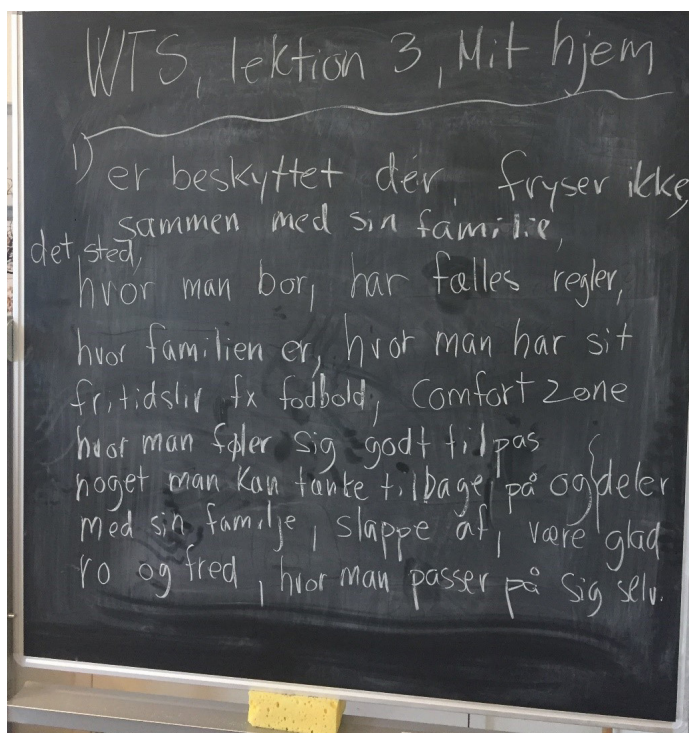 WTS, lektion 3, Mit hjem
1) er beskyttet dér, fryser ikke,
sammen med sin familie,
det sted,
hvor man bor, har fælles regler,
hvor familien er, hvor man har sit
fritidsliv fx fodbold, Comfort zone
hvor man føler sig godt tilpas
noget man kan tænke tilbage på og deler
med sin familje, slappe af, være glad
ro og fred, hvor man passer på sig selv.